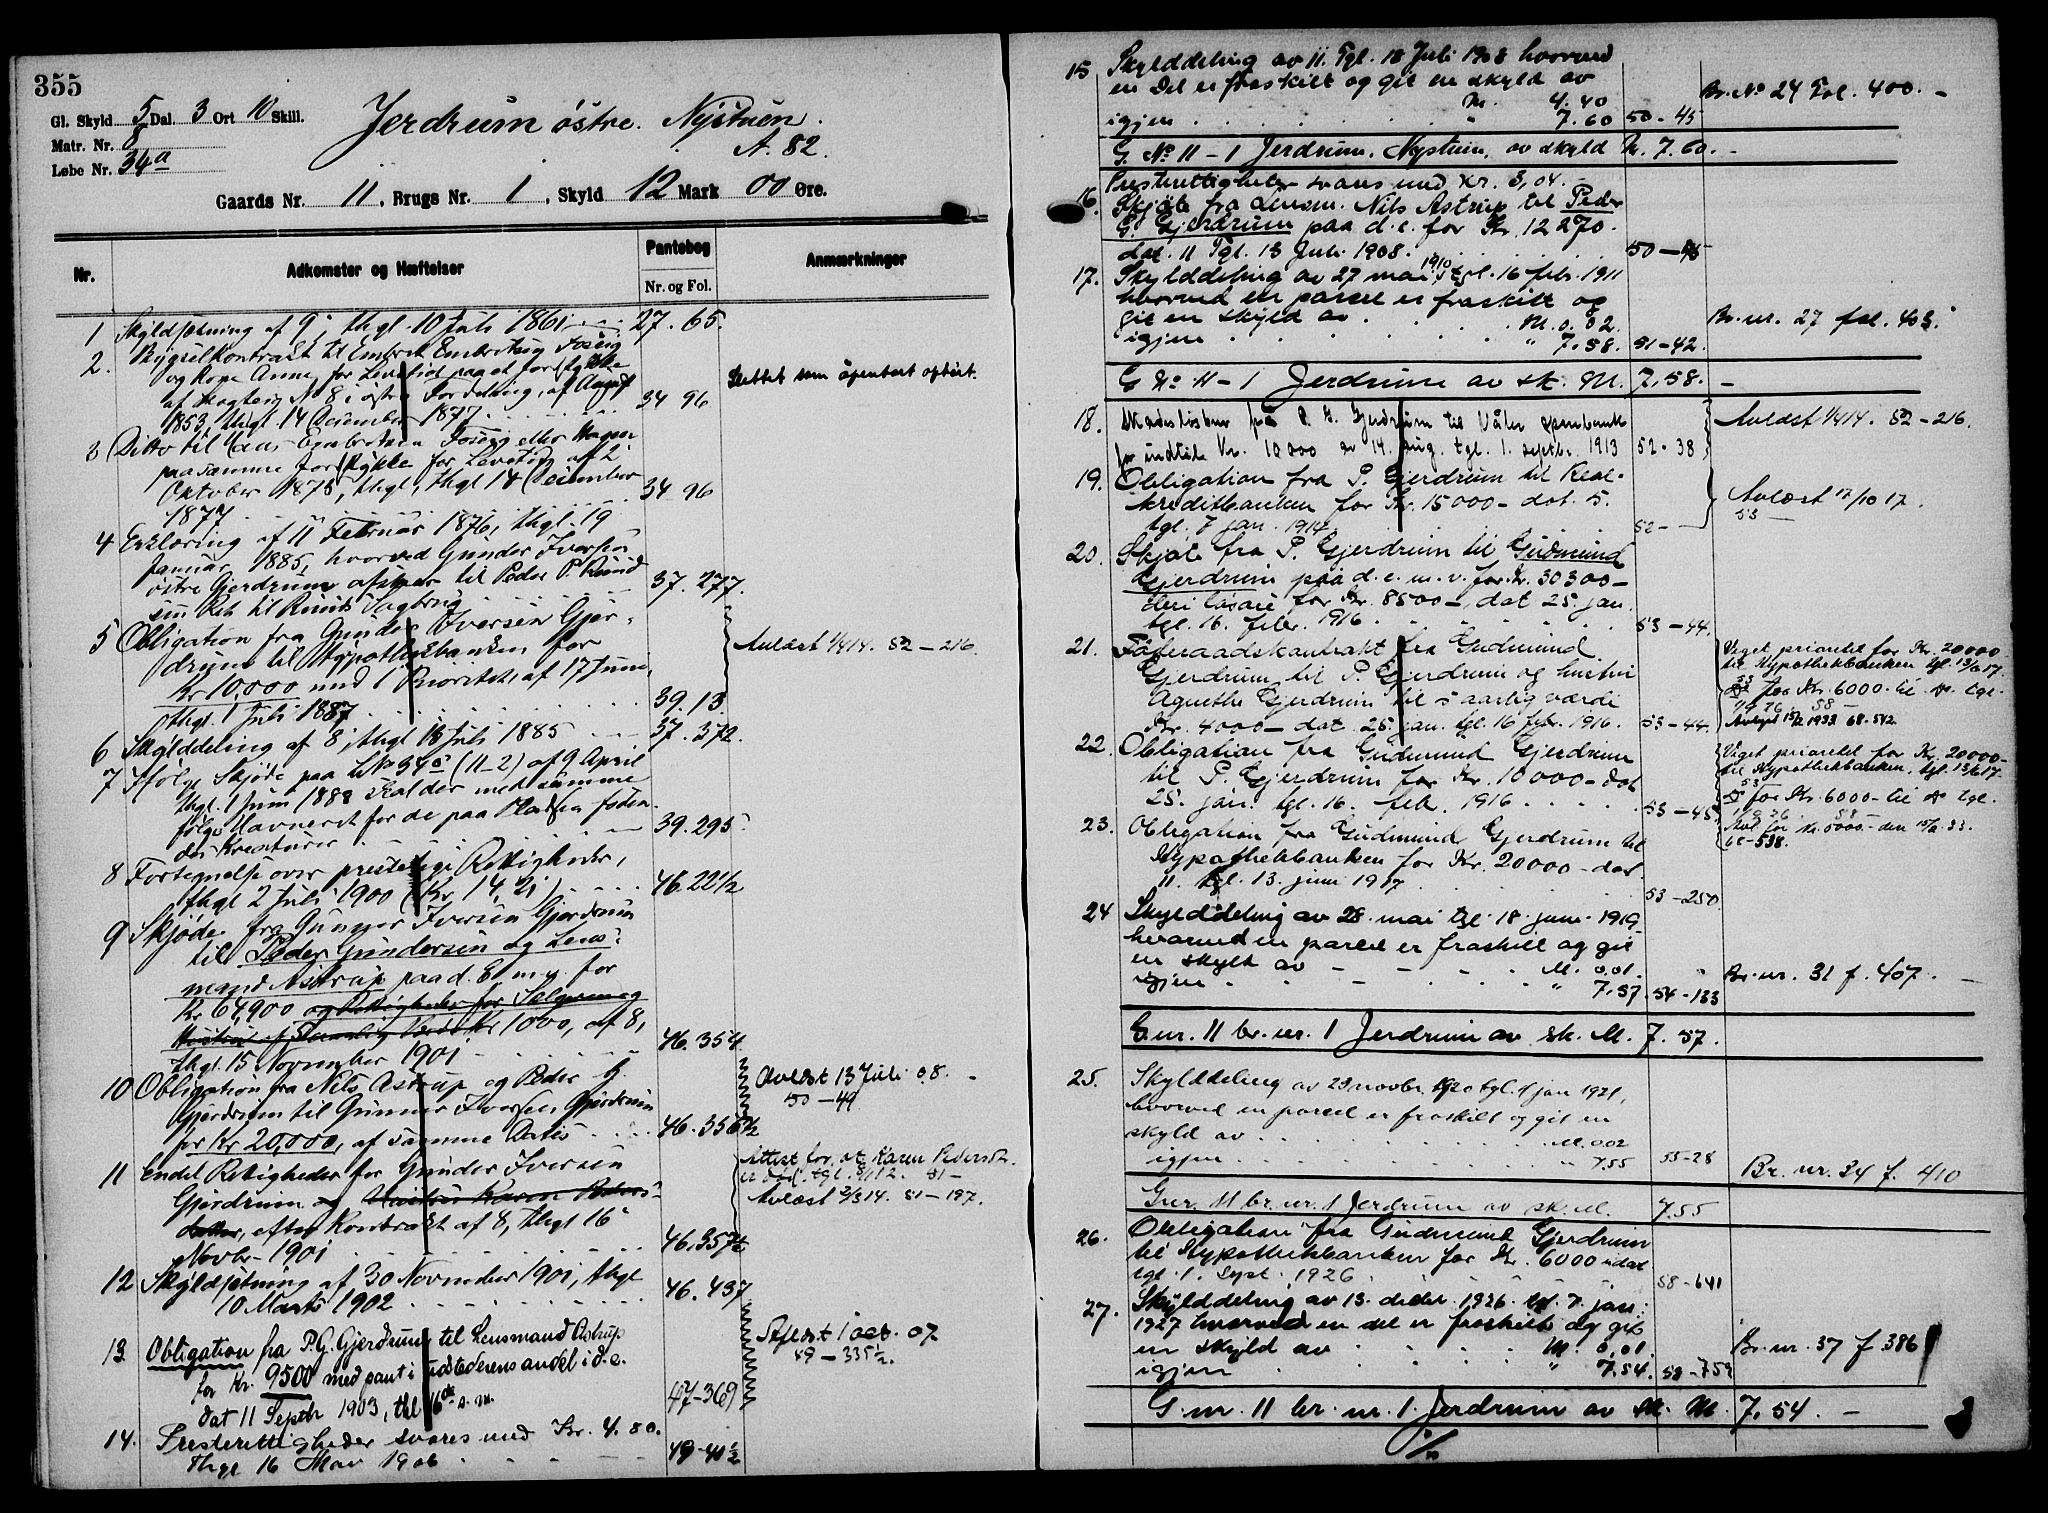 355
Gl. Skyld 5 Dal. 3 Ort 10 Skill.
Matr. Nr. 8
Løbe Nr. 34a
Jerdrum østre. Nystuen.
A. 82.
Gaards Nr. 11, Brugs Nr. 1, Skyld 12 Mark 00 Øre.
Nr.
Adkomster og Hæftelser
Pantebog
Nr. og Fol.
Anmærkninger
1 Skyldsetning af 9, thgl. 10 Juli 1861 27. 65.
2. Bygselkontrakt til Embret Embretsen
og Kone Anne for Levetid paa et Jordstykke
af No 8 østre af August
1853, thgl. 14 December 1877 34 96
Slettet som åpenbart ophørt.
3 Ditto til Embretsen
paa samme Jordstykke for Levetid af 2
Oktober 1873, thgl, thgl 14 December
1877 34 96
4 Erklæring af 11 Februar 1876, thgl. 19
Januar 1885, hvorved Gunder Iversen
østre Gjerdrum til Peder P. Rund
sin Ret til Sagbrug 37. 277.
5 Obligation fra Gunder Iversen Gjer-
drum til Hypothekbanken for
Kr 10,000 med 1 Prioritet, af 17 Juni,
thgl. 1 Juli 1887 39. 13.
Avløst 1/4 14. 52 - 216.
6 Skylddeling af 8, thgl 18 Juli 1885 37. 372.
7 Ifølge Skjøde paa (11-2) af 9 April
thgl. 1 Juni 1888 skal der med samme
følge Havneret for de paa Pladsen føden-
des Kreaturer 39. 295.
8 Fortegnelse over prestelige Rettigheder,
thgl 2 Juli 1900 (Kr 14,21) 46. 22 1/2
9 Skjøde fra Gunder Iversen Gjerdrum
til Peder Gundersen og Lens-
mand Astrup paa d. E. m. v. for
Kr 64,900 og Rettigheder for Sælgeren og
Hustru af 5aarlig Værdi Kr 1000, af 8,
thgl. 15 November 1901 46. 354
10 Obligation fra Nils Astrup og Peder G.
Gjerdrum til Gunder Iversen Gjerdrum
for Kr 20,000, af samme Datis 46. 356 1/2
Avløst 13 Juli 08.
50 - 49
11 Endel Rettigheder for Gunder Iversen
Gjerdrum og Hustru Karen Peders-
datter, efter Kontrakt af 8, thgl 16
Novbr 1901 46. 357 1/2
Attest for at Karen Pedersdtr.
er død. tgl. 12. 51 -
Avløst 2/3 14. 51 - 197.
12 Skyldsetning af 30 November 1901, thgl
10 Marts 1902 46. 437
13 Obligation fra P. G. Gjerdrum til Lensmand Astrup
for Kr. 9500 med pant i udstederens andel i d. e.
dat 11 Septbr 1903, thl 16de s. m. 47-369
Afløst 1 oct. 07
49 - 335 1/2.
14. Presterettigheder svares med Kr. 4.80.
Thgl 16 Mar 1906 49-41 1/2
15 Skylddeling av 11. Tgl. 18 Juli 1908 hvorved
en Del er fraskilt og git en skyld av
M. 4.40
igjen 7.60 50-45
Br. No 24 Fol. 400.
G. No 11-1 Jerdrum, Nystuen, av skyld M. 7.60.
Presterettigheder svares med Kr. 3,04.
16. Skjøte fra Lensm. Nils Astrup til Peder
G. Gjerdrum paa d. e. for Kr. 12270.
dat. 11 Tgl. 13 Juli 1908. 50-46
17. Skylddeling av 27 mai 1910, tgl. 16 febr. 1911
hvorved en parcel er fraskilt og
git en skyld av M. 0.02.
igjen " 7.58. 51-42.
Br. nr. 27 fol. 403.
G No 11-1 Jerdrum av sk. M. 7.58.
18. Skadesløsbrev fra P. G. Gjerdrum til Våler sparebank
for indtil Kr. 10000 av 14. aug. tgl. 1. septbr. 1913 52-38
Avløst 1/4 14. 52-216.
19. Obligation fra P. Gjerdrum til Real-
kreditbanken for Kr. 15000 - dat. 5.
tgl. 7 jan. 1914. 52-
Avløst 17/10 17.
53
20. Skjøte fra P. Gjerdrum til Gudmund
Gjerdrum paa d. e. m. v. for Kr. 30300 -
deri løsøre for Kr. 8500 -, dat 25. jan.
tgl. 16. febr. 1916 53-44.
21. Føderaadskontrakt fra Gudmund
Gjerdrum til P. Gjerdrum og hustru
Agnethe Gjerdrum til 5 aarlig værdi
Kr. 4000 - dat. 25. jan. tgl. 16 febr. 1916. 53-44.
Veget prioritet for Kr. 20000 -
til Hypothekbanken tgl. 13/6 17.
53
Do for Kr. 6000 - til do tgl.
1/9 26. 58 -
Avlyst 15/2 1933 68-542
22. Obligation fra Gudmund Gjerdrum
til P. Gjerdrum for Kr. 10000 - dat
25. jan. tgl. 16. feb. 1916 53-45
Veget prioritet for Kr. 20000 -
til Hypothekbanken, tgl. 13/6 17.
53
Do for Kr. 6000 - til do tgl.
1/9 26. 58
Avl. for Kr. 5000. - den 15/2. 33.
68-538.
23. Obligation fra Gudmund Gjerdrum til
Hypothekbanken for Kr. 20000 - dat.
11. tgl. 13. juni 1917 53-250.
24 Skylddeling av 28. mai tgl. 18. juni 1919
hvorved en parcel er fraskilt og git
en skyld av M. 0.01.
igjen " 7.57. 54-133
Br. nr. 31 f. 407.
G. nr. 11 br. nr. 1 Jerdrum av sk. M. 7.57.
25. Skylddeling av 29 novbr. 1920 tgl. 1 jan 1921,
hvorved en parcel er fraskilt og git en
skyld av M. 0.02
igjen " 7.55 55-28
Br. nr. 34 f. 410
G. nr. 11 br. nr. 1 Jerdrum av sk. M. 7.55
26. Obligation fra Gudmund Gjerdrum
til Hypothekbanken for Kr. 6000 udat
tgl. 1. Sept. 1926 58-641
27. Skylddeling av 13. decbr. 1926. tgl. 7. jan.
1927 hvorved en del er fraskilt og git
en skyld av M. 0.01.
igjen " 7.54. 58-759
Br. nr. 37 f 386
G. nr. 11 br. nr. 1. Jerdrum av sk. M. 7.54.